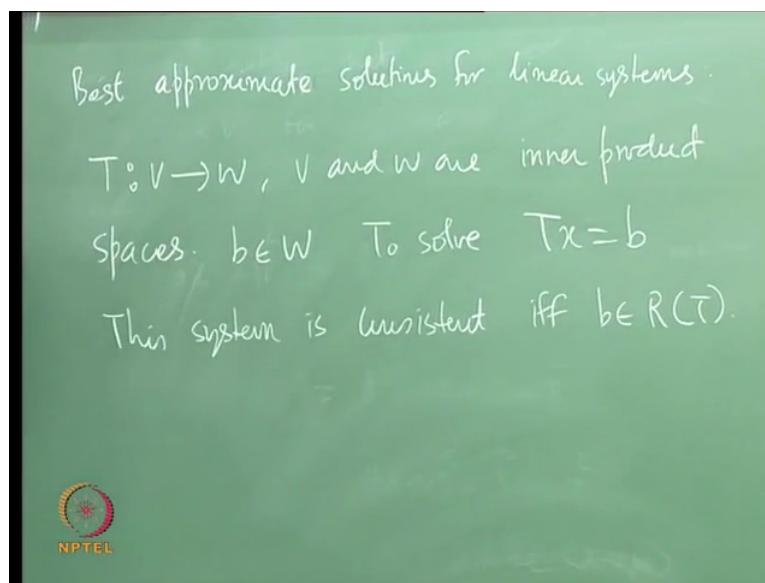 Best approximate solutions for linear systems.
T: V → W, V and W are inner product
spaces. b ∈ W To solve Tx = b
This system is consistent iff b ∈ R(T).
NPTEL